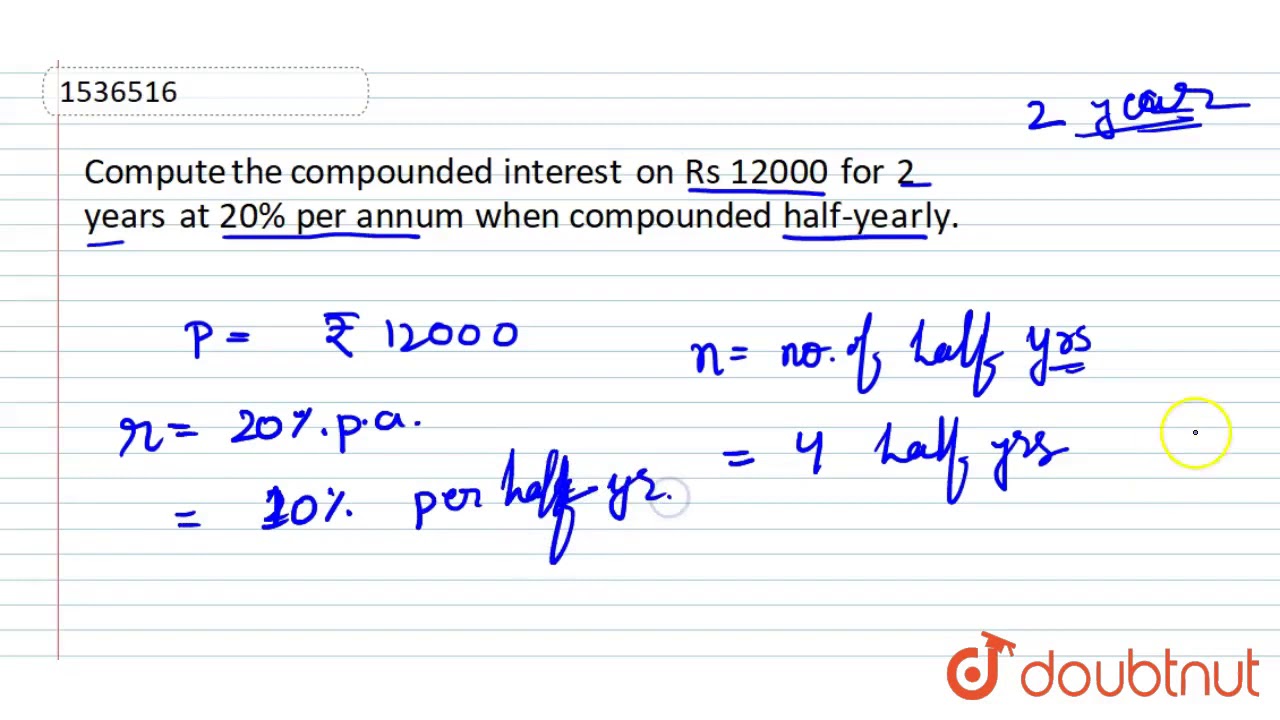 1536516
2 years
Compute the compounded interest on Rs 12000 for 2
years at 20% per annum when compounded half-yearly.
P = ₹ 12000
n = no. of half yrs
r = 20%. p.a.
= 4 half yrs
= 10% per half-yr.
doubtnut